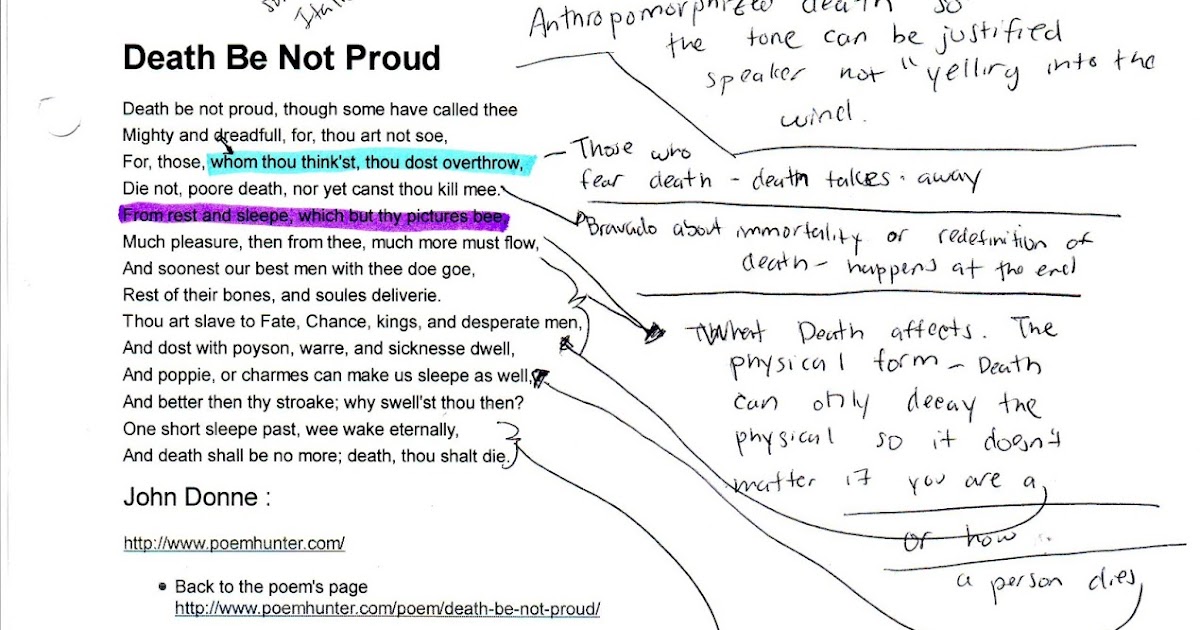 Anthropomorphized death so
the tone can be justified
speaker not "yelling into the
wind.
Death Be Not Proud
Death be not proud, though some have called thee
Mighty and dreadfull, for, thou art not soe,
For, those, whom thou think'st, thou dost overthrow,
Die not, poore death, nor yet canst thou kill mee.
From rest and sleepe, which but thy pictures bee,
Much pleasure, then from thee, much more must flow,
And soonest our best men with thee doe goe,
Rest of their bones, and soules deliverie.
Thou art slave to Fate, Chance, kings, and desperate men,
And dost with poyson, warre, and sicknesse dwell,
And poppie, or charmes can make us sleepe as well,
And better then thy stroake; why swell'st thou then?
One short sleepe past, wee wake eternally,
And death shall be no more; death, thou shalt die.
John Donne :
http://www.poemhunter.com/
• Back to the poem's page
http://www.poemhunter.com/poem/death-be-not-proud/
– Those who
fear death – death takes away
Bravado about immortality or redefinition of
death – happens at the end
What Death affects. The
physical form – Death
can only decay the
physical so it doesn't
matter if you are a
or how
a person dies